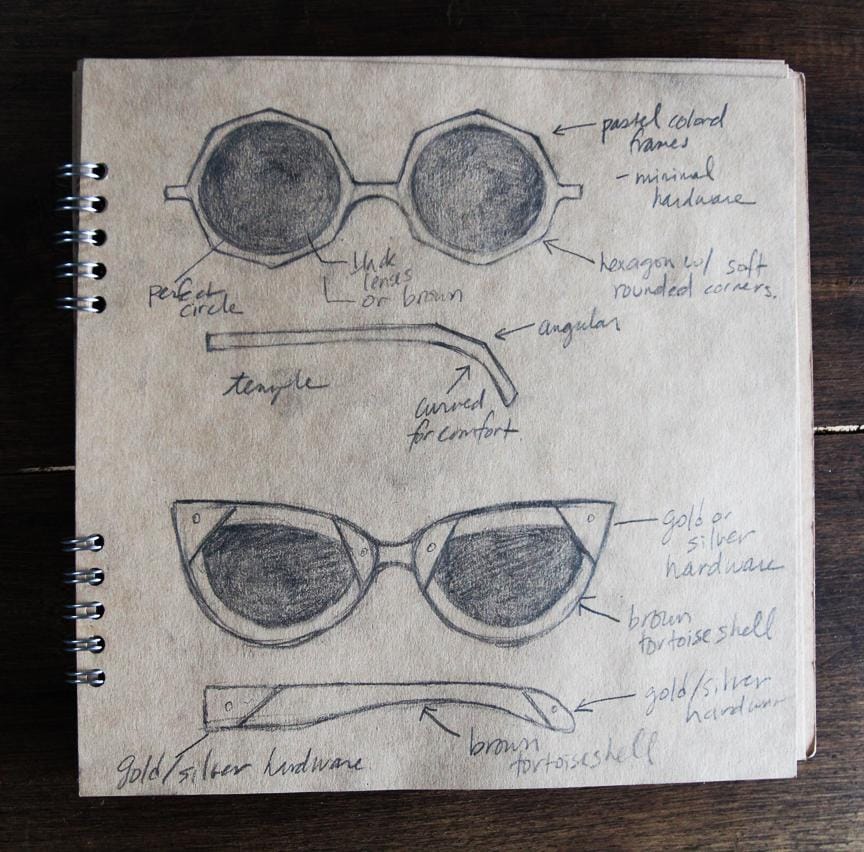 pastel colord
frames
- minimal
hardware
hexagon w/ soft
rounded corners.
perfect
circle
black
lenses
or brown
angular
temple
curved
for comfort
gold or
silver
hardware
brown
tortoise shell
gold/silver
hardware
brown
tortoiseshell
gold/silver hardware